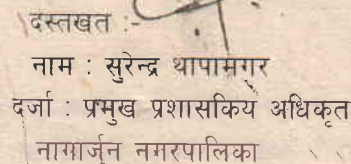 दस्तखत :-
नाम : सुरेन्द्र थापामगर
दर्जा : प्रमुख प्रशासकिय अधिकृत
नागार्जुन नगरपालिका